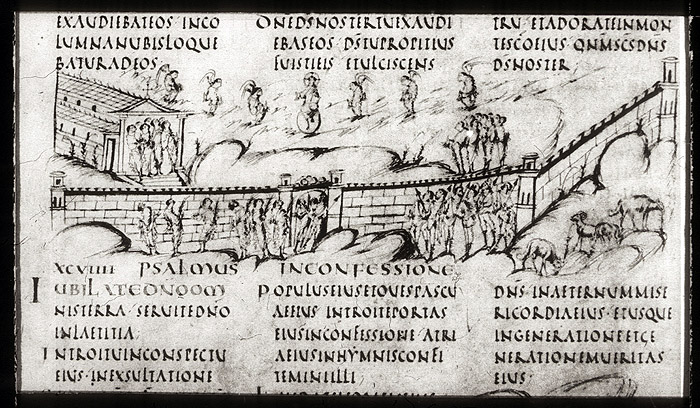 EXAUDIEBATEOS INCO
LUMNANUBISLOQUE
BATURADEOS
DNEDSNOSTERTUEXAUDI
EBASEOS DSTUPROPITIUS
FUISTIEIS ETULCISCENS
TRU· ETADORATEINMON
TESCOEIUS QNMSCSDNS
DSNOSTER
XCVIIII PSALMUS INCONFESSIONE
IUBILATEDNOOM
NISTERRA· SERUITEDNO
INLAETITIA·
INTROITUINCONSPECTU
EIUS· INEXSULTATIONE
POPULUSEIUSETOUESPASCU
AEEIUS INTROITEPORTAS
EIUSINCONFESSIONE ATRI
AEIUSINHYMNISCONFI
TEMINIILLI
DNS· INAETERNUMMISE
RICORDIAEIUS· ETUSQUE
INGENERATIONEETGE
NERATIONEMUERITAS
EIUS·